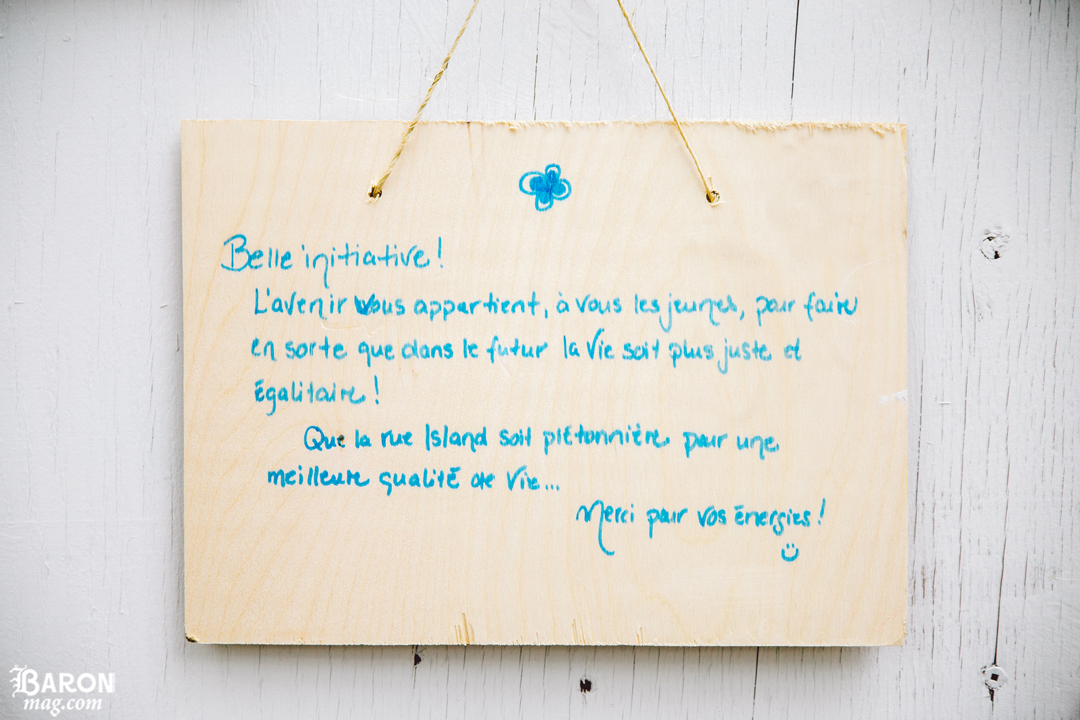 Belle initiative!
L'avenir vous appartient, à vous les jeunes, pour faire
en sorte que dans le futur la vie soit plus juste et
égalitaire!
Que la rue Island soit piétonnière pour une
meilleure qualité de vie...
Merci pour vos énergies!
BARON
mag.com